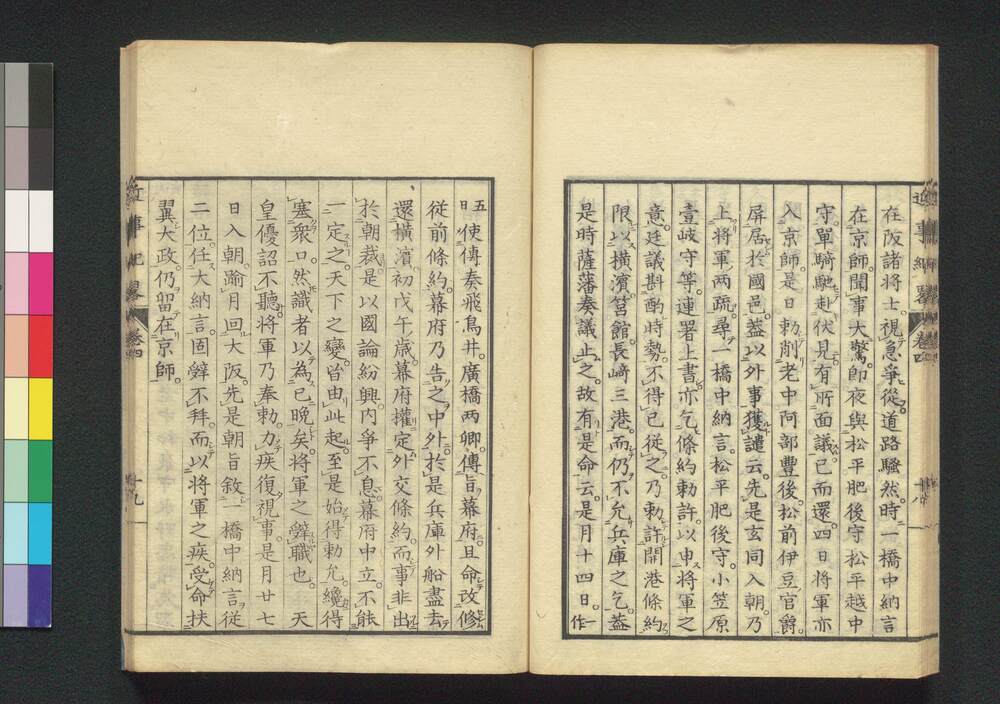 在阪諸將士視急爭從道路騷然時一橋中納言
在京師聞事大驚卽夜與松平肥後守松平越中
守單騎馳赴伏見有所面議已而還四日將軍亦
入京師是日勅削老中阿部豐後松前伊豆官爵
屏居於國邑蓋以外事獲譴云先是玄同入朝乃
上將軍兩疏尋一橋中納言松平肥後守小笠原
壹岐守等連署上書亦乞條約勅許以申將軍之
意廷議斟酌時勢不得已從之乃勅許開港條約
限以橫濱筥館長崎三港而仍不允兵庫之乞蓋
是時薩藩奏議止之故有是命云是月十四日一作
五日使傳奏飛鳥井廣橋兩卿傳旨幕府且命改修
從前條約幕府乃告之中外於是兵庫外船盡去
還橫濱初戊午歲幕府權定外交條約而事非出
於朝裁是以國論紛興內爭不息幕府中立不能
一定之天下之變皆由此起至是始得勅允纔得
塞衆口然識者以為已晚矣將軍之辭職也　天
皇優詔不聽將軍乃奉勅力疾復視事是月廿七
日入朝踰月回大阪先是朝旨敘一橋中納言從
二位任大納言固辭不拜而以將軍之疾受命扶
翼大政仍留在京師
近事紀畧　卷四　十九